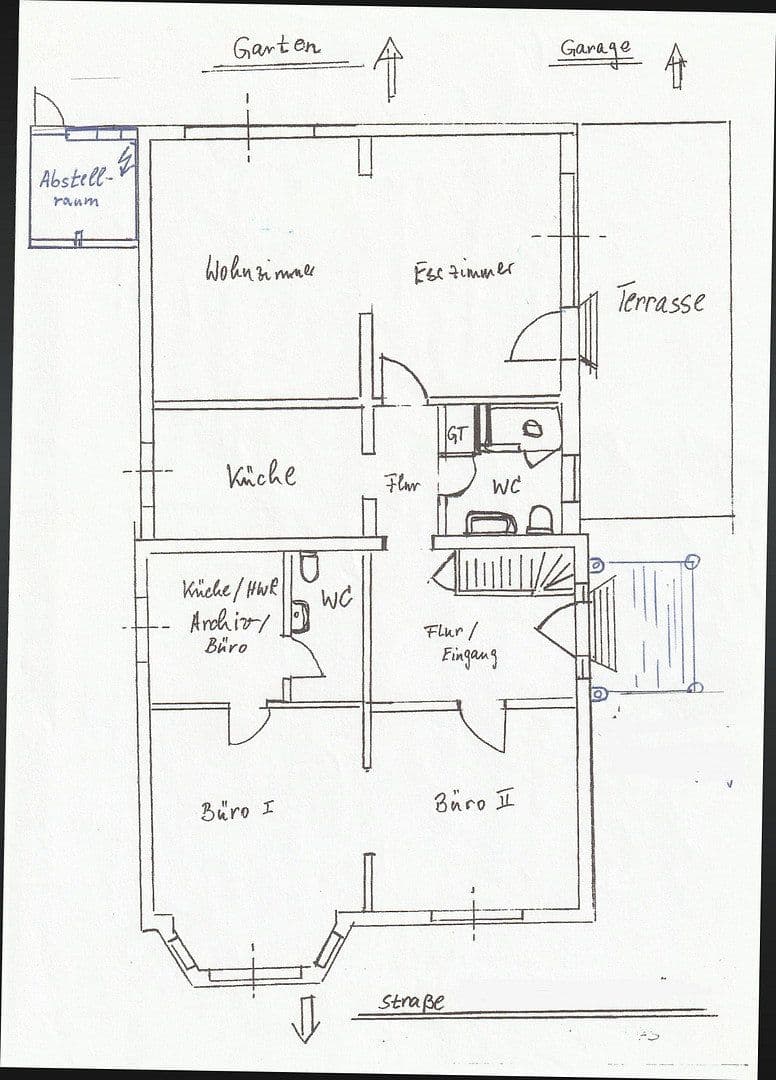 Garten
Garage
Abstell-
raum
Wohnzimmer
Esszimmer
Terrasse
Küche
Flur
GT
WC
Küche/HWR
Archiv/
Büro
WC
Flur/
Eingang
Büro I
Büro II
Straße